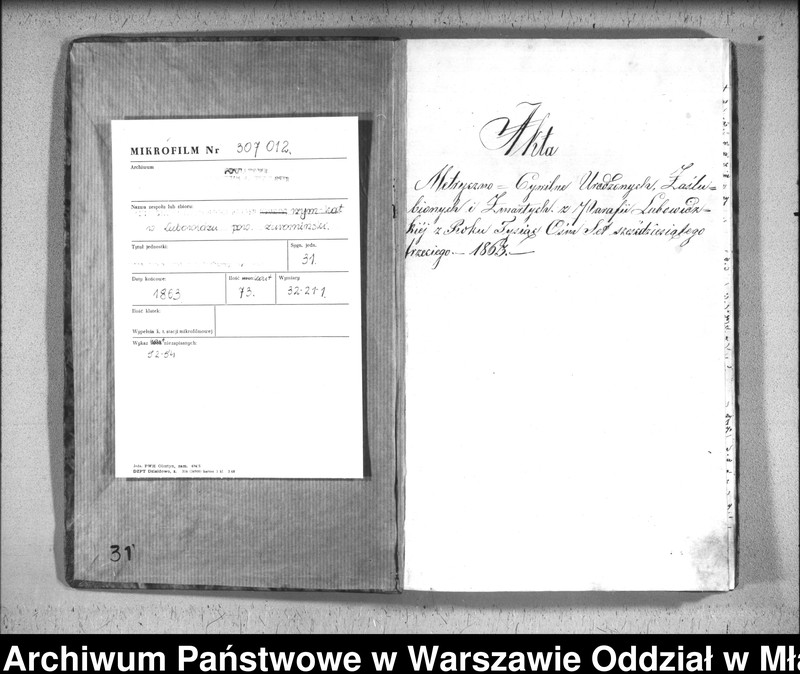 MIKROFILM Nr 307 012.
Archiwum
Nazwa zespołu lub zbioru:
rzym-kat
w Lubowidzu pow. żuromiński.
Tytuł jednostki:
Sygn. jedn.
31.
Daty końcowe:
1863
Ilość
73.
Wymiary
32-21-1.
Ilość klatek:
Wypełnia k. z stacji mikrofilmowej
Wykaz niezapisanych:
52-54
31
Akta
Metryczno = Cywilne Urodzonych, Zaślu=
bionych i Zmarłych z Parafii Lubowidz=
kiéj z Roku Tysiąc Ośm Set sześćdziesiątego
trzeciego. — 1863. —
Archiwum Państwowe w Warszawie Oddział w Mła